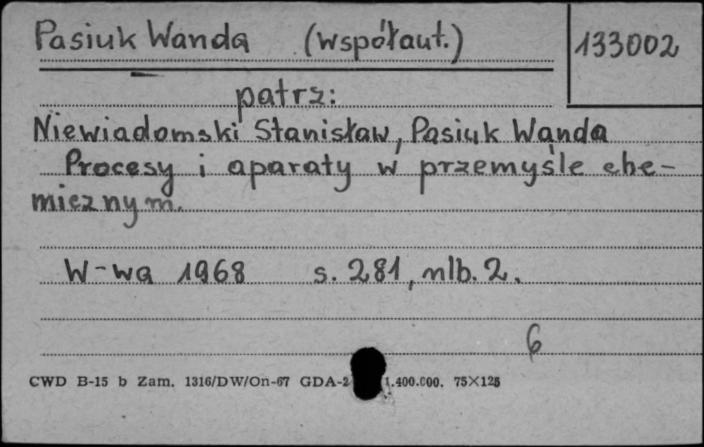 Pasiuk Wanda (współaut.) 133002
patrz:
Niewiadomski Stanisław, Pasiuk Wanda
Procesy i aparaty w przemyśle che-
micznym.
W-wa 1968 s. 281, nlb. 2.
6
CWD B-15 b Zam. 1316/DW/On-67 GDA-2 1.400.000. 75×125